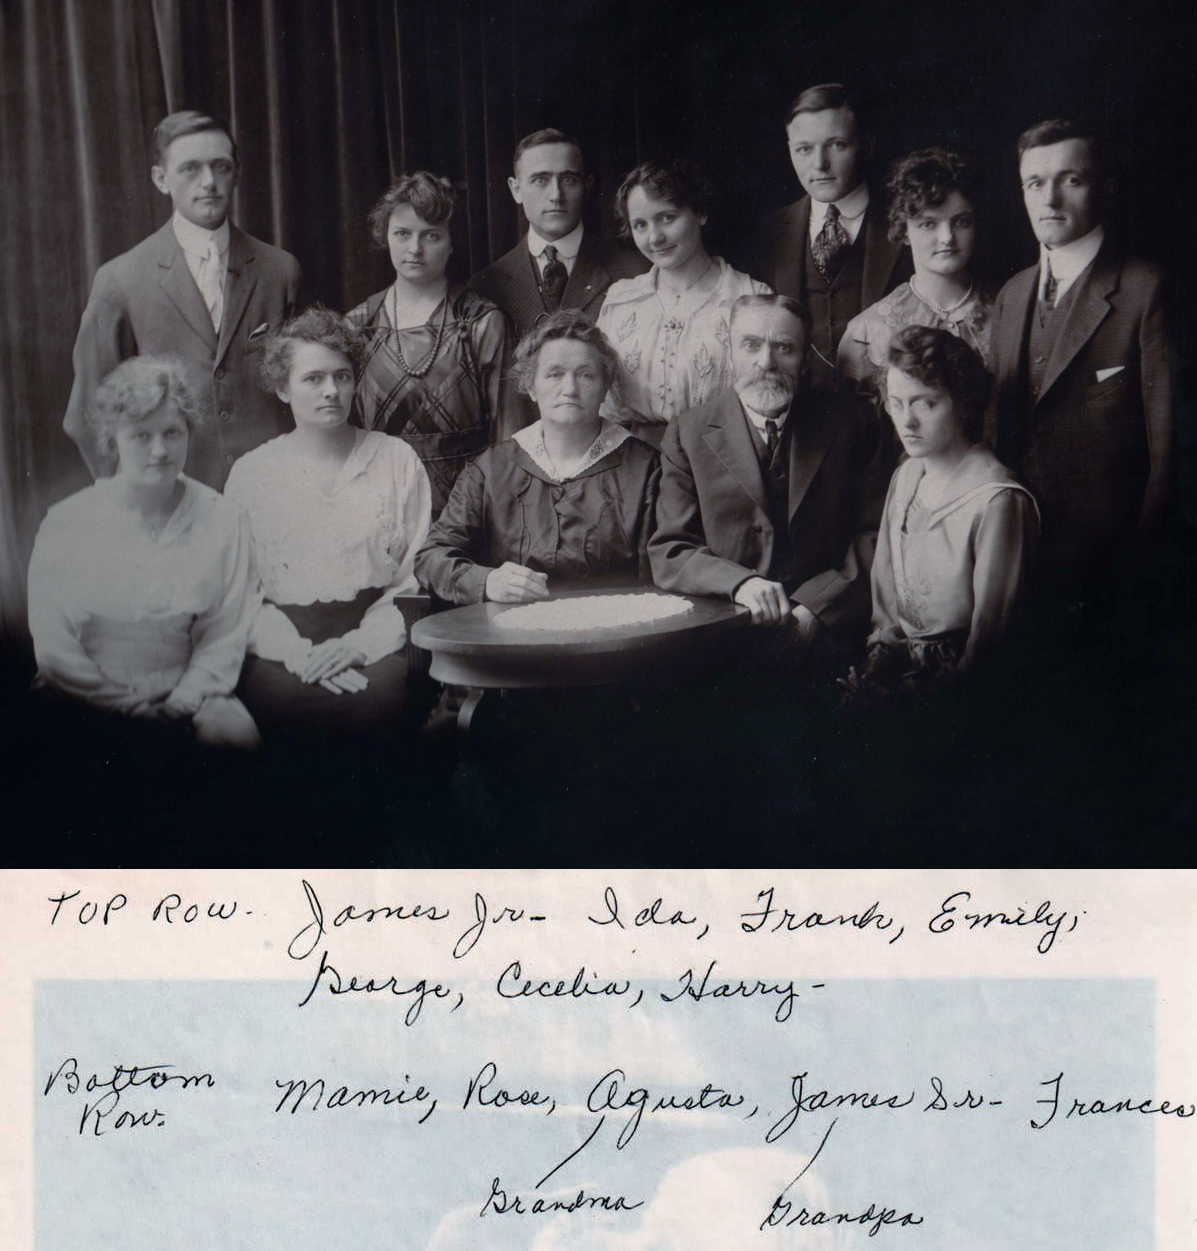 TOP ROW. James Jr- Ida, Frank, Emily,
George, Cecelia, Harry-
Bottom
Row. Mamie, Rose, Agusta, James Sr- Frances
Grandma Grandpa